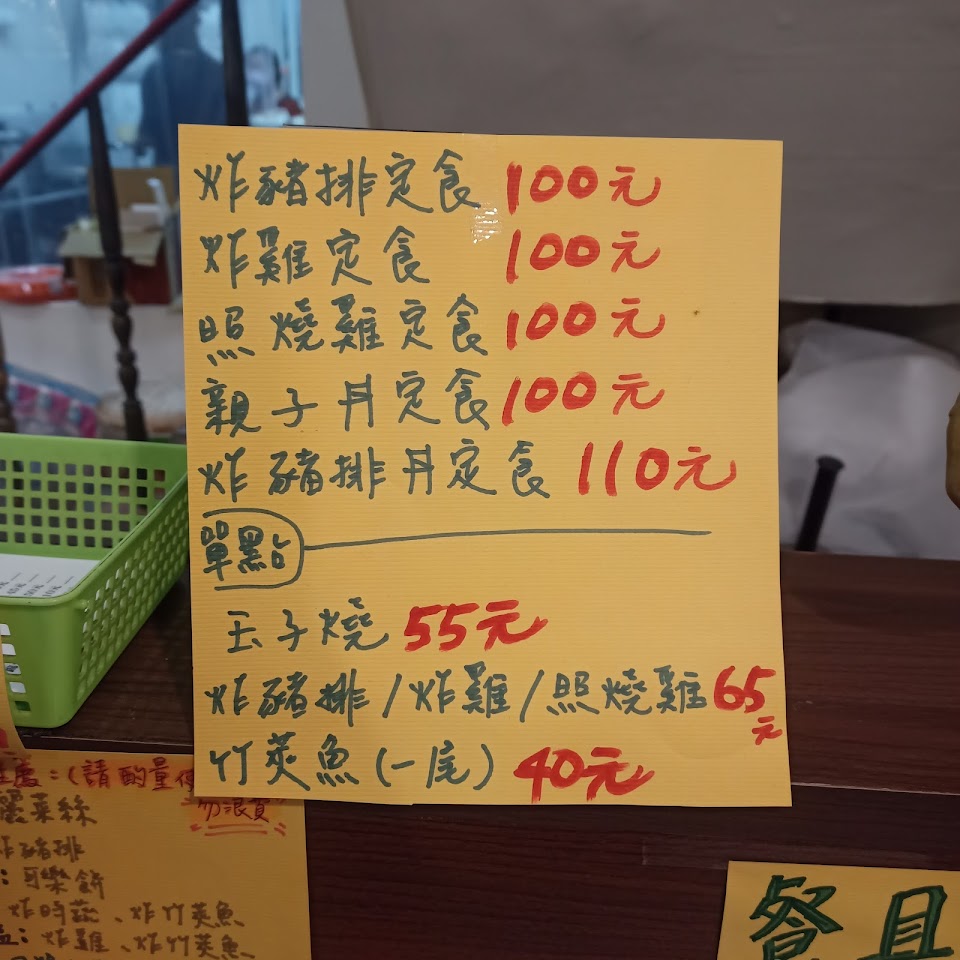 炸豬排定食 100元
炸雞定食 100元
照燒雞定食 100元
親子丼定食 100元
炸豬排丼定食 110元
單點
玉子燒 55元
炸豬排/炸雞/照燒雞 65元
竹莢魚(一尾) 40元
:(請酌量
勿浪費
菜絲
炸豬排
:可樂餅
炸時蔬、炸竹莢魚
炸雞、炸竹莢魚
餐具